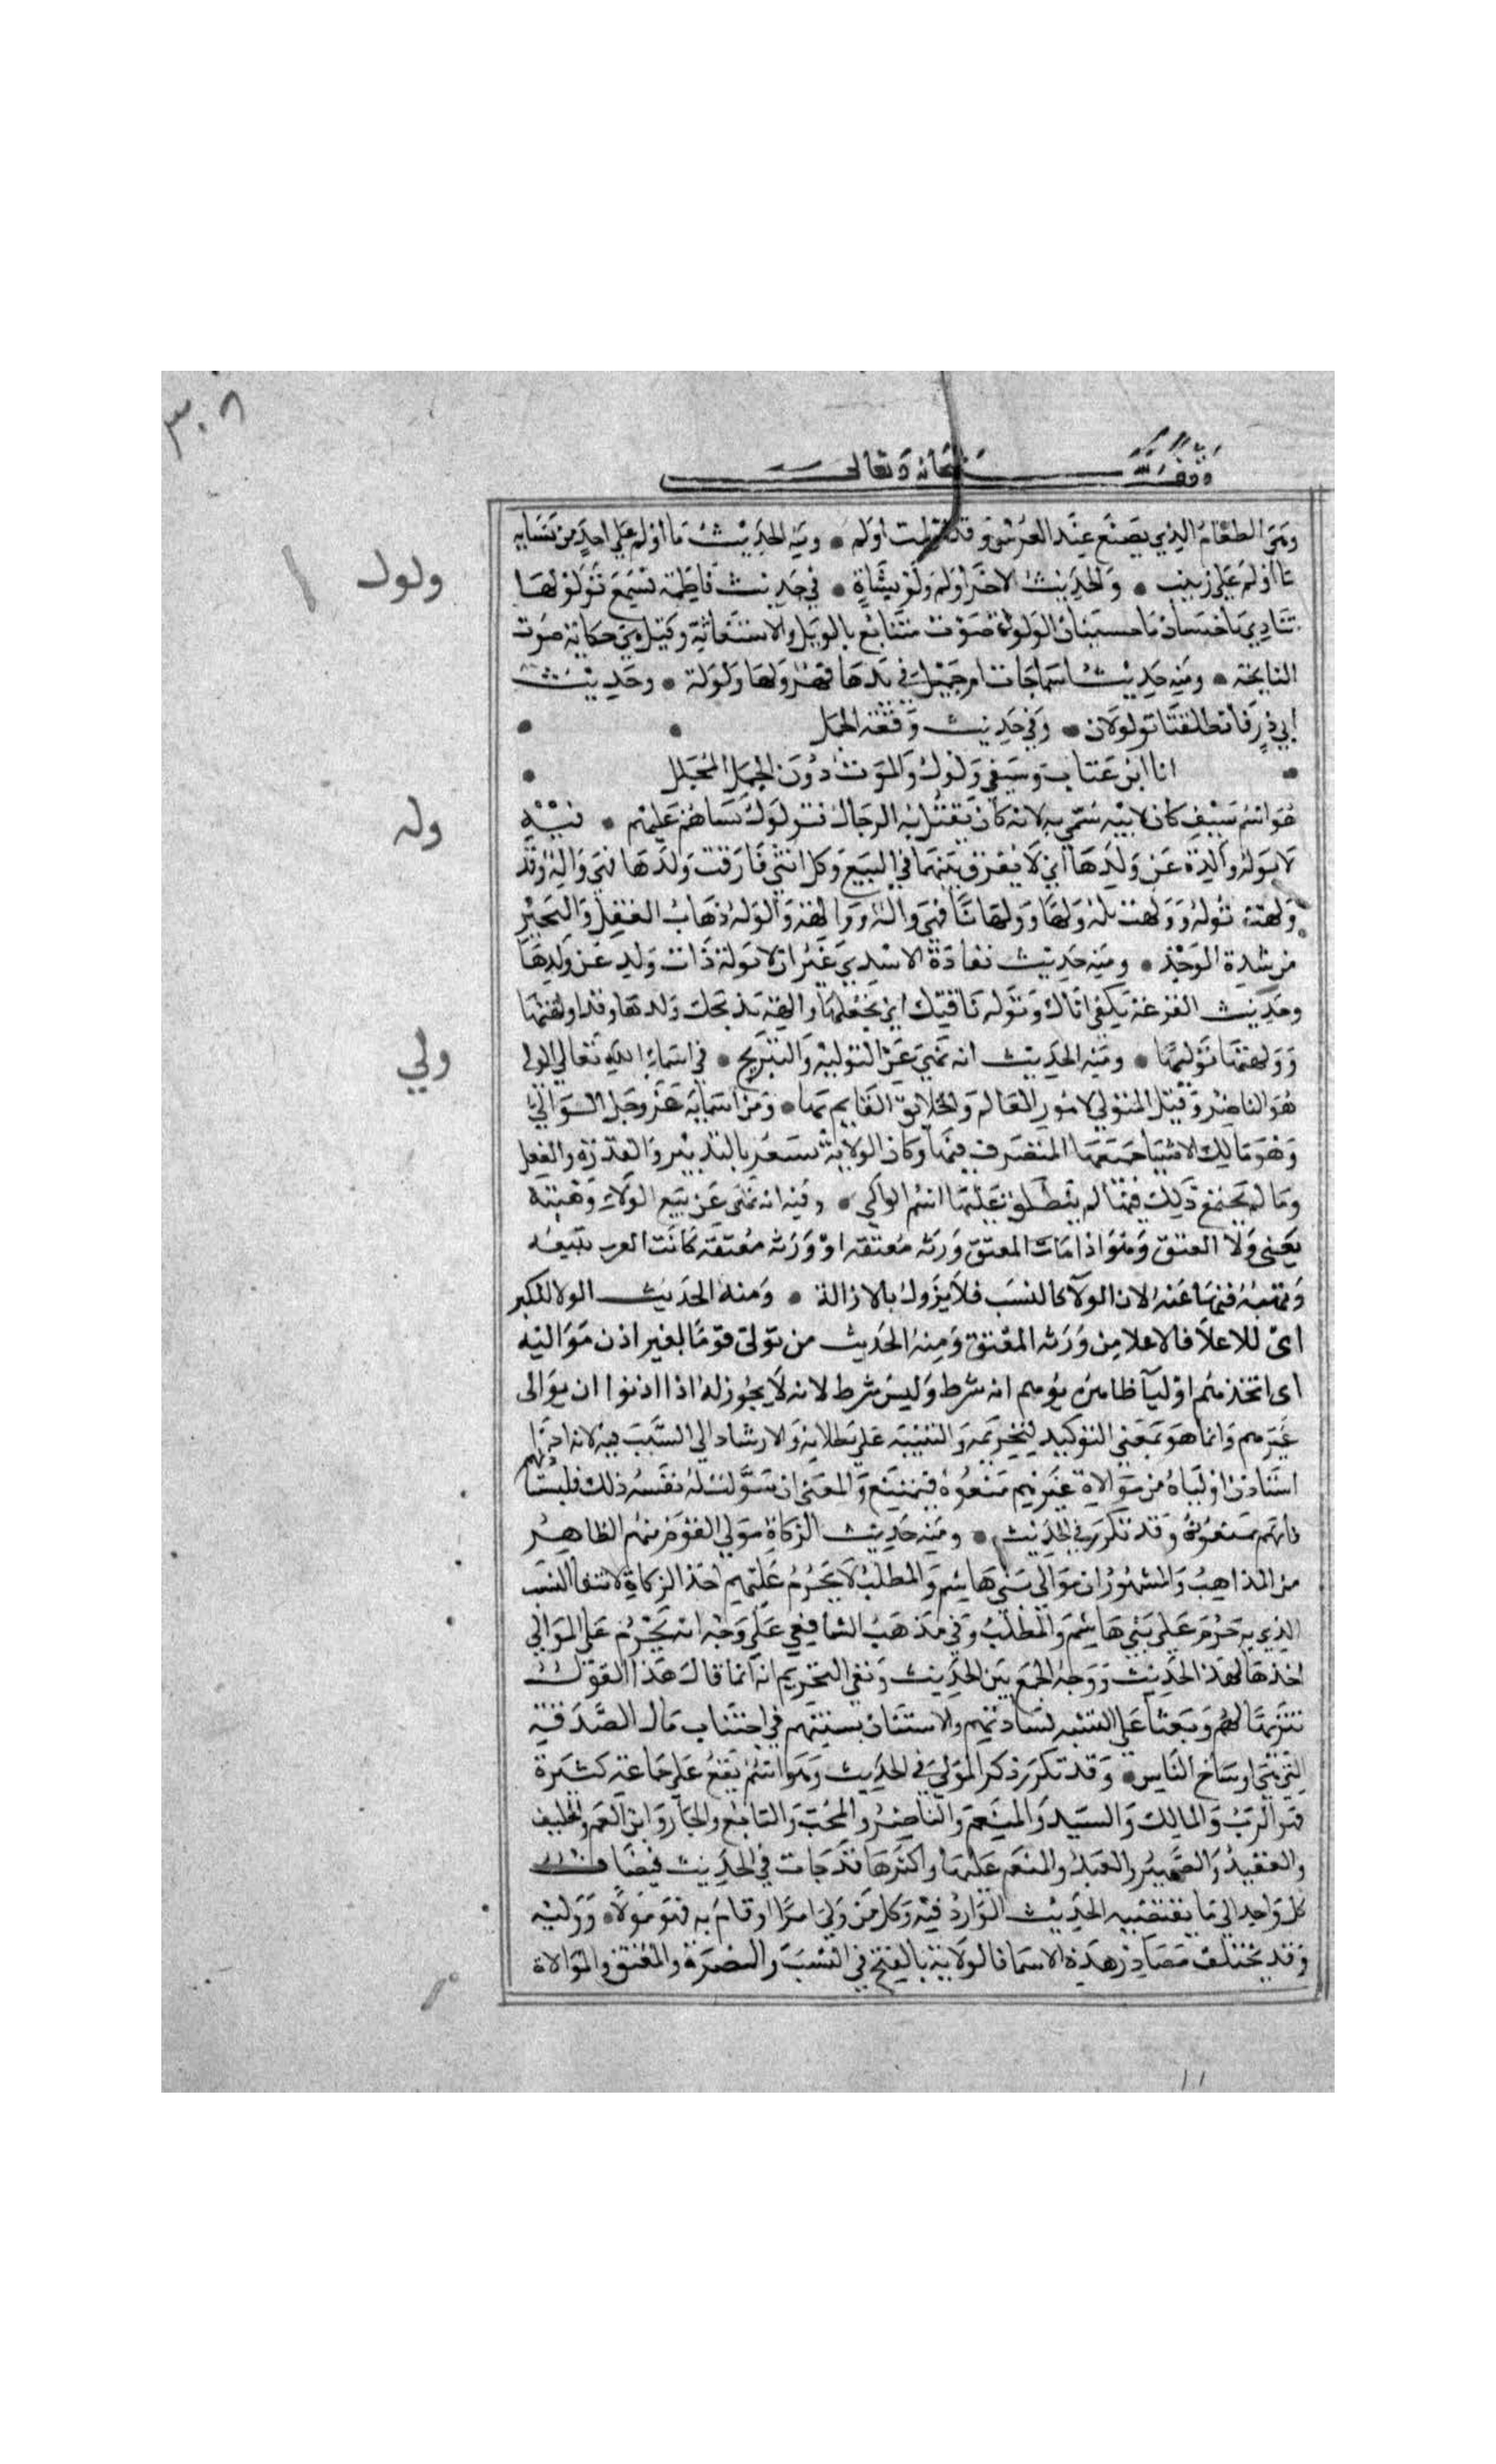 ٣٠٨
وقف لله سبحانه وتعالى
وهي الطعام الذي يصنع عند العرس وقد اولمت اولم • ومنه الحديث ما اولم على احد من نسايه
ما اولم على زينب • والحديث الاخر اولم ولو بشاة • في حديث فاطمة تسمع تولولها
ولول
تنادي يا حسنان يا حسينان الولولة صوت متتابع بالويل والاستغاثة وقيل هي حكاية صوت
النايحة • ومنه حديث اسما جات ام جميل في يدها فهر ولها ولولة • وحديث
ابي ذر فانطلقتا تولولان • وفي حديث وقعة الجمل
انا ابن عتاب وسيفي ولول والموت دون الجمل المجلل
هو اسم سيف كان لابيه سمي به لانه كان يقتل به الرجال فتولول نساهم عليهم • فيه
وله
لا توله والدة عن ولدها اي لا يفرق بينهما في البيع وكل انثى فارقت ولدها فهي واله وقد
ولهت توله وولهت تله ولها وولهانا فهي والهة وواله والوله ذهاب العقل والتحير
من شدة الوجد • ومنه حديث نقادة الاسدي غير ان لا توله ذات ولد عن ولدها
وحديث الفرعة تكفي اناك وتوله ناقتك اي تجعلها والهة بذبحك ولدها وقد اولهتها
وولهتها توليها • ومنه الحديث انه نهى عن التوليه والتبريح • في اسماء الله تعالى الولي
ولي
هو الناصر وقيل المتولي لامور العالم والخلايق القايم بها • ومن اسمايه عز وجل الوالي
وهو مالك الاشيا جميعها المتصرف فيها وكان الولاية تشعر بالتدبير والقدرة والفعل
وما لم يجتمع ذلك فيها لم ينطلق عليها اسم الوالي • وفيه انه نهى عن بيع الولاء وهبته
يعني ولا العتق وهو اذا مات المعتق ورثه معتقه او ورثه معتقه كانت العرب تبيعه
وتهبه فنهى عنه لان الولآ كالنسب فلا يزول بالازالة • ومنه الحديث الولا للكبر
اى للاعلا فالاعلا من ورثه المعتق ومنه الحديث من تولى قوما بغير اذن مواليه
اى اتخذهم اوليآ ظاهره يوهم انه شرط وليس شرط لانه لا يجوز له اذا اذنوا ان يوالى
غيرهم وانما هو بمعني التوكيد لتحريمه والتنبيه على بطلانه والارشاد الى السبب فيه لانه اذا
استاذن اولياه من موالاة غيرهم منعوه فيمتنع والمعنى ان سولت له نفسه ذلك فليستاذنهم
فانهم يمنعونه وقد تكرر في الحديث • ومنه حديث الزكاة مولى القوم منهم الظاهر
من المذاهب والمشهور ان موالي بني هاشم والمطلب لا يحرم عليهم اخذ الزكاة لانتفا النسب
الذي به حرم على بني هاشم والمطلب وفي مذهب الشافعي على وجه انه يحرم على الموالي
اخذها لهذا الحديث ووجه الجمع بين الحديث ونفي التحريم انه انما قال هذا القول
تنزيها لهم وبعثا على التشبه بسادتهم والاستنان بسنتهم في اجتناب مال الصدقة
التي هي اوساخ الناس • وقد تكرر ذكر المولى في الحديث وهو اسم يقع على جماعة كثيرة
فهو الرب والمالك والسيد والمنعم والناصر والمحب والتابع والجار وابن العم والحليف
والعقيد والصهر والعبد والمنعم عليه واكثرها قد جات في الحديث فيضاف
كل واحد الى ما يقتضيه الحديث الوارد فيه وكل من ولي امرا او قام به فهو مولاه ووليه
وقد تختلف مصادر هذه الاسما فالولاية بالفتح في النسب والنصرة والمعتق والموالاة